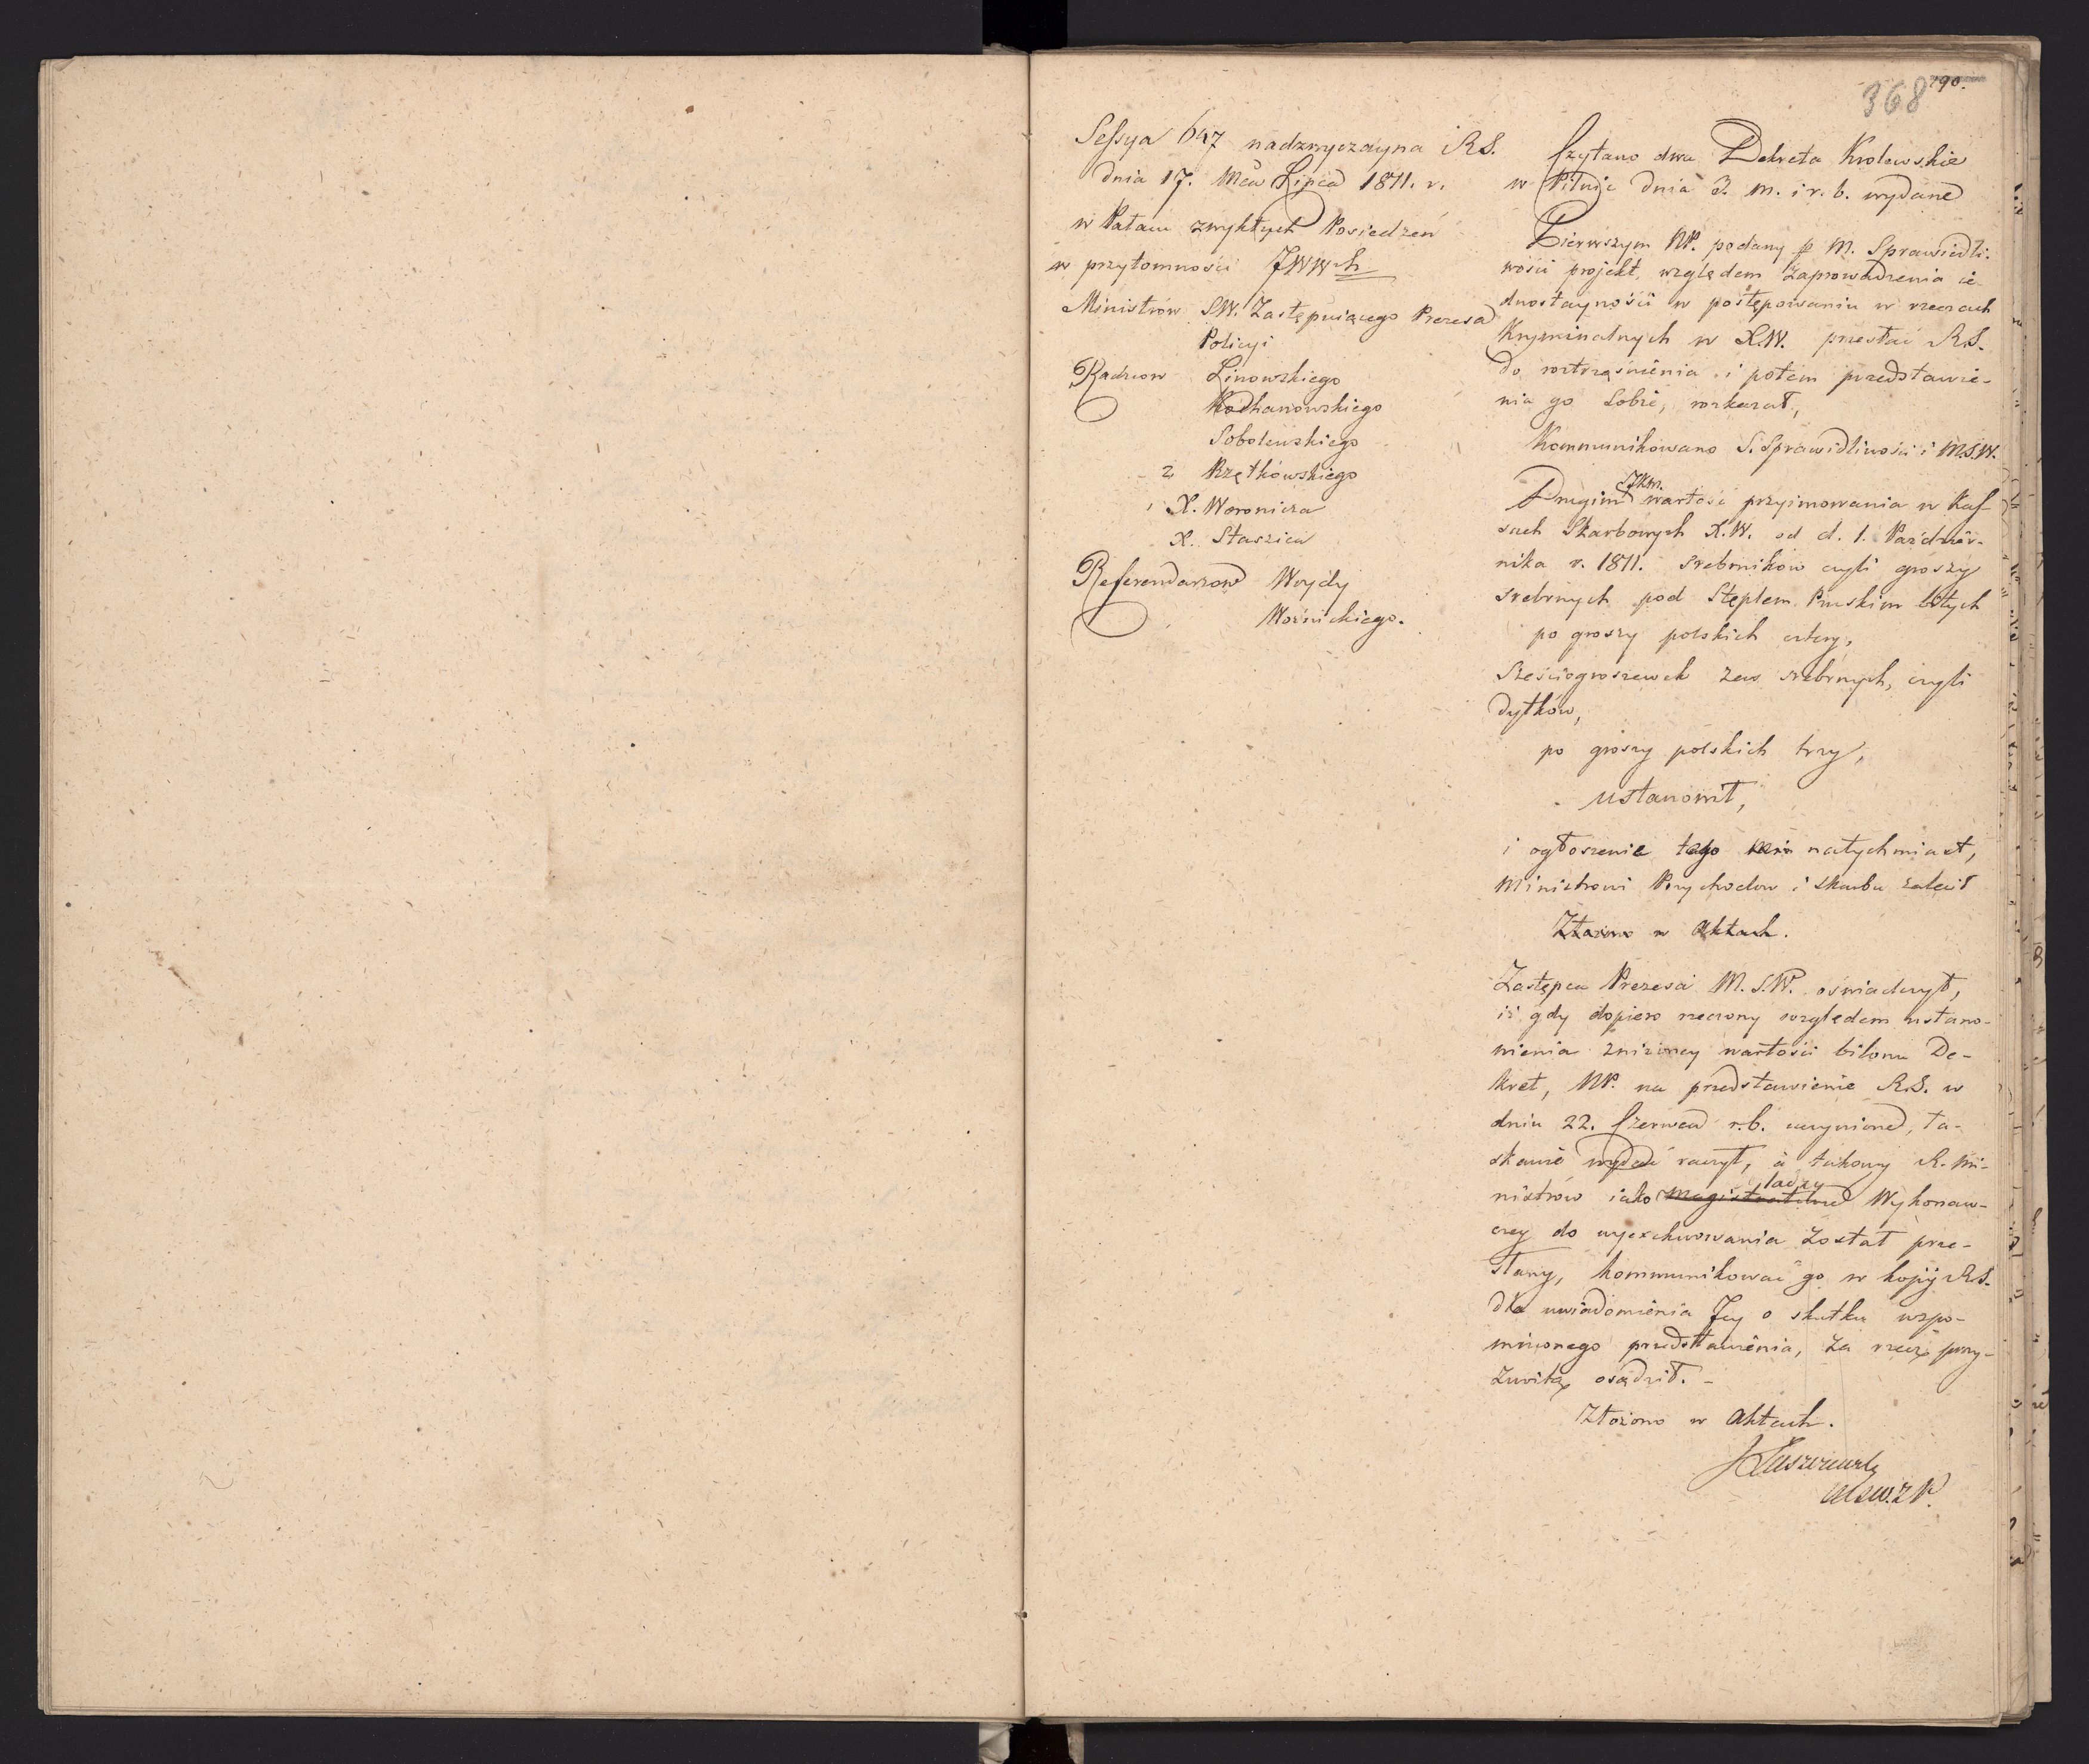 368 190.
Sessya 647 nadzwyczayna R.S.
dnia 17. Mca Lipca 1811. r.
w Pałacu zwykłych Posiedzeń
w przytomności JWWch
Ministrów S.W. Zastępuiącego Prezesa
Policyi
Radzców Linowskiego
Kochanowskiego
Sobolewskiego
2 Rzętkowskiego
1 X. Woronicza
X. Staszica
Referendarzow Woydy
Woźnickiego.
Czytano dwa Dekreta Krolewskie
w Pilnic dnia 3. m. i r. b. wydane
Pierwszym NP. podany p M. Sprawiedli-
wości projekt, względem zaprowadzenia ie-
dnostayności w postępowaniu w rzeczach
Kryminalnych w X.W. przesłać R.S.
do roztrząśnienia i potem przedstawie-
nia go Sobie, rozkazał,
Kommunikowano S. Sprawidliwości i M.S.W.
Drugim JKM. wartość przyimowania w Kas
sach Skarbowych X.W. od d. 1. Paździer-
nika r. 1811. srebrników czyli groszy
srebrnych pod Stęplem Pruskim bitych
po groszy polskich cztery,
sześciogroszewek zaś srebrnych, czyli
dytków,
po groszy polskich trzy,
ustanowił,
i ogłoszenie tego natychmiast,
Ministrowi Przychodow i skarbu zalecił
Złożono w Aktach.
Zastępca Prezesa M.S.W. oświadczył,
iż gdy dopiero rzeczony względem ustano-
wienia zniżoney wartości bilonu De-
kret, NP. na przedstawienie R.S. w
dniu 22. Czerwca r.b. uczynione, ła-
skawie wydać raczył, à takowy R. Mi-
nistrów iako władzy Wykonaw-
czey do wyexekwowania został prze-
słany, kommunikować go w kopij R.S.
dla uwiadomienia Jey o skutku wspo-
mnionego przedstawienia, za rzecz przy-
zwoitą osądził. -
Złożono w Aktach.